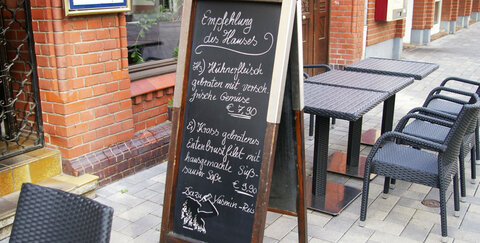 Empfehlung
des Hauses
1.) Hühnerfleisch
gebraten mit versch.
frische Gemüse
€ 7,90
2.) Kross gebratenes
Entenbrustfilet mit
hausgemachte Süß-
sauer Soße
€ 9,90
Dazu Jasmin-Reis